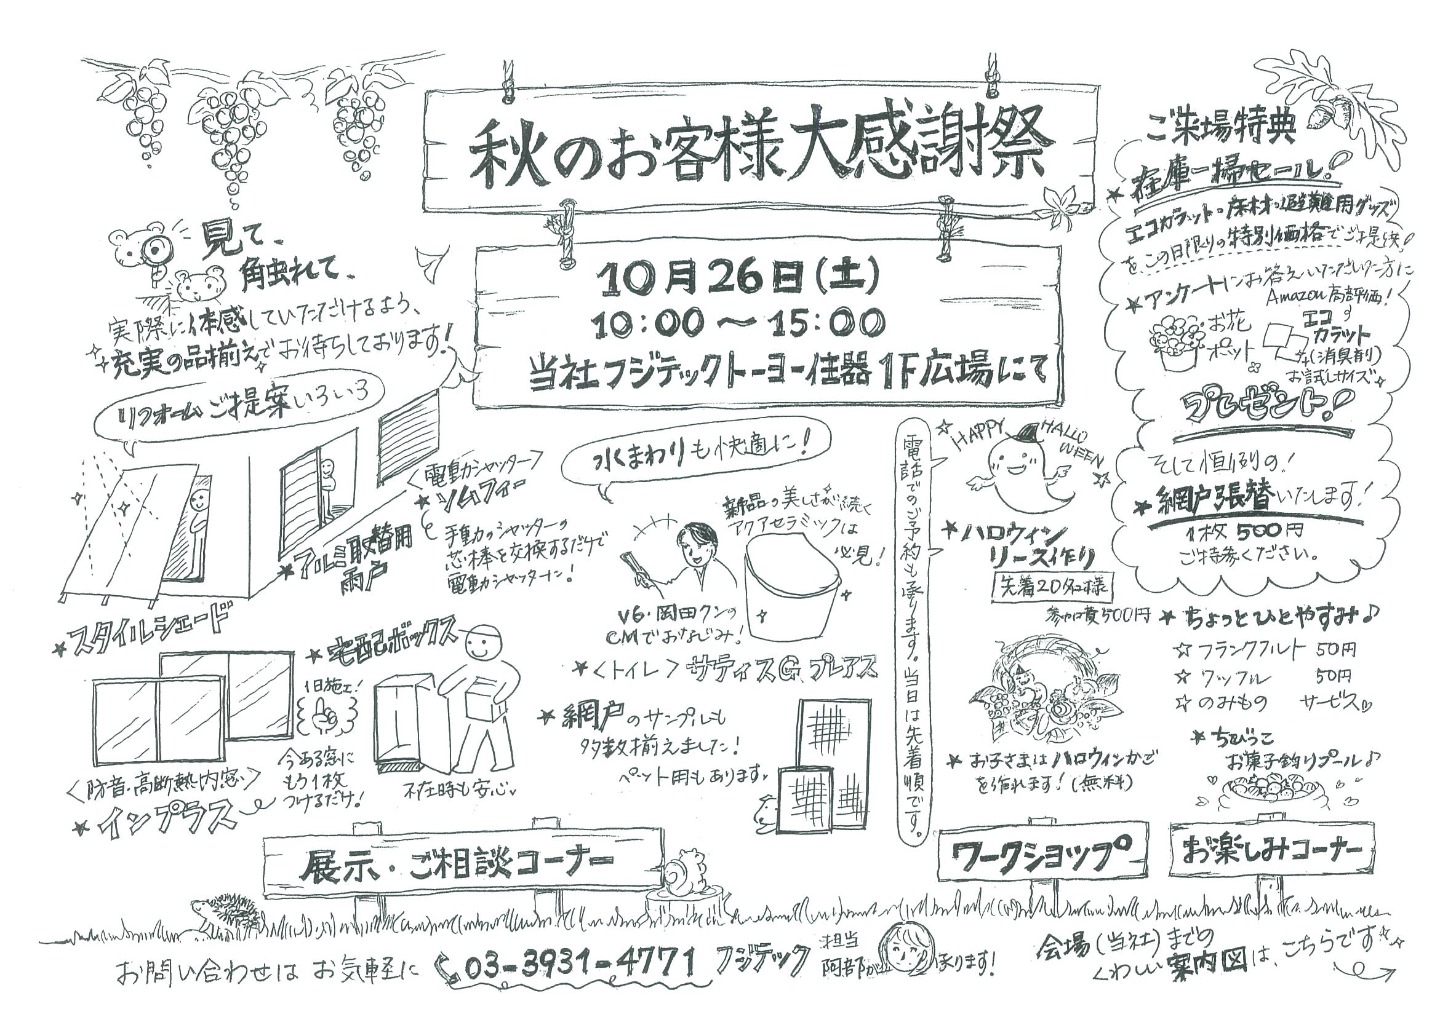 秋のお客様大感謝祭
10月26日(土)
10:00～15:00
当社フジテックトーヨー住器1F広場にて
見て、
触れて、
実際に体感していただけるよう、
充実の品揃えでお待ちしております!
リフォームご提案いろいろ
★スタイルシェード
★アルミ取替用
雨戸
<電動シャッター>
★ソムフィー
手動のシャッターの
芯棒を交換するだけで
電動シャッターに!
<防音・高断熱内窓>
★インプラス
今ある窓に
もう1枚
つけるだけ!
1日施工!
★宅配ボックス
不在時も安心
水まわりも快適に!
新品の美しさが続く
アクアセラミックは
必見!
V6・岡田クンの
CMでおなじみ!
★<トイレ>サティスG プレアス
★網戸のサンプルも
多数揃えました!
ペット用もあります
展示・ご相談コーナー
電話でのご予約も承ります。当日は先着順です。
HAPPY HALLOWEEN
★ハロウィン
リース作り
先着20名様
参加費500円
★お子さまはハロウィンかご
を作れます!(無料)
ワークショップ
ご来場特典
★在庫一掃セール!
エコカラット・床材・避難用グッズ
を、この日限りの特別価格でご提供!
★アンケートにお答えいただいた方に
Amazon高評価!
お花
ポット
エコ
カラット
(消臭剤)
お試しサイズ
プレゼント!
そして恒例の!
★網戸張替いたします!
1枚500円
ご持参ください。
★ちょっとひとやすみ♪
☆フランクフルト 50円
☆ワッフル 50円
☆のみもの サービス
★ちびっこ
お菓子釣りプール♪
お楽しみコーナー
お問い合わせは お気軽に 03-3931-4771 フジテック 担当
阿部が承ります!
会場(当社)までの
くわしい案内図は、こちらです